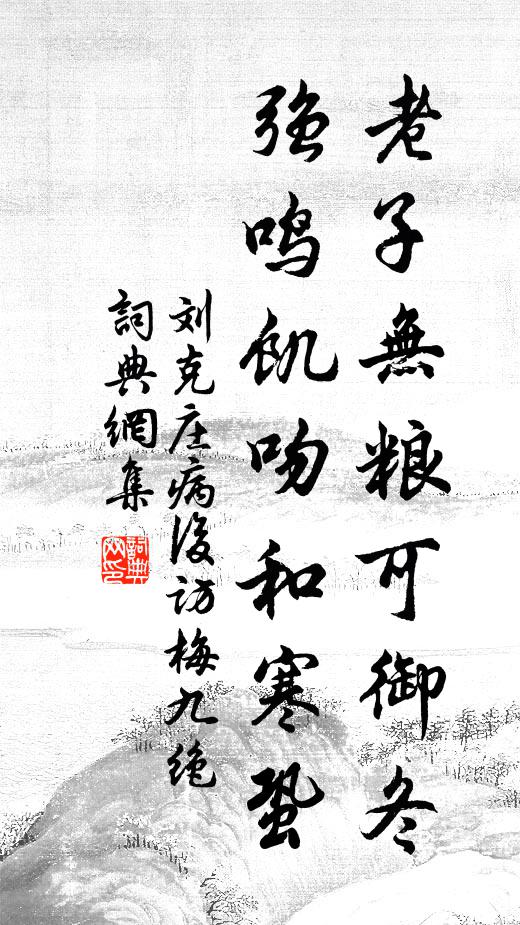 老子無粮可御冬
强鸣飢吻和寒蛩
刘克庄病後访梅九绝
詞典網集
詞典網印